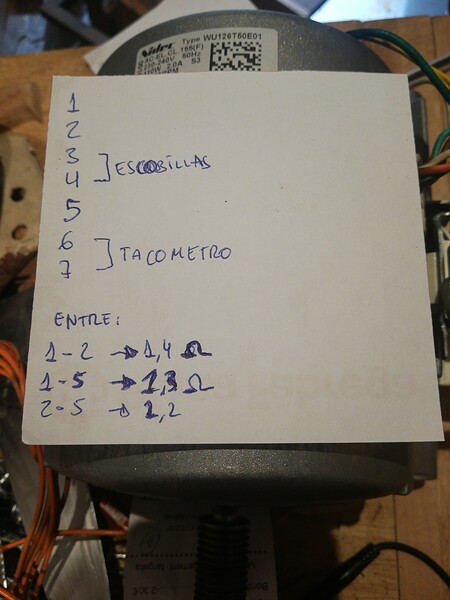 Nidec Type WU126T50E01
AC-EL.CL.155(F)
220-240V 50Hz
2,0A S3
1
2
3
4 ESCOBILLAS
5
6
7 TACOMETRO
ENTRE:
1-2 → 1,4 Ω
1-5 → 1,3 Ω
2-5 → 1,2